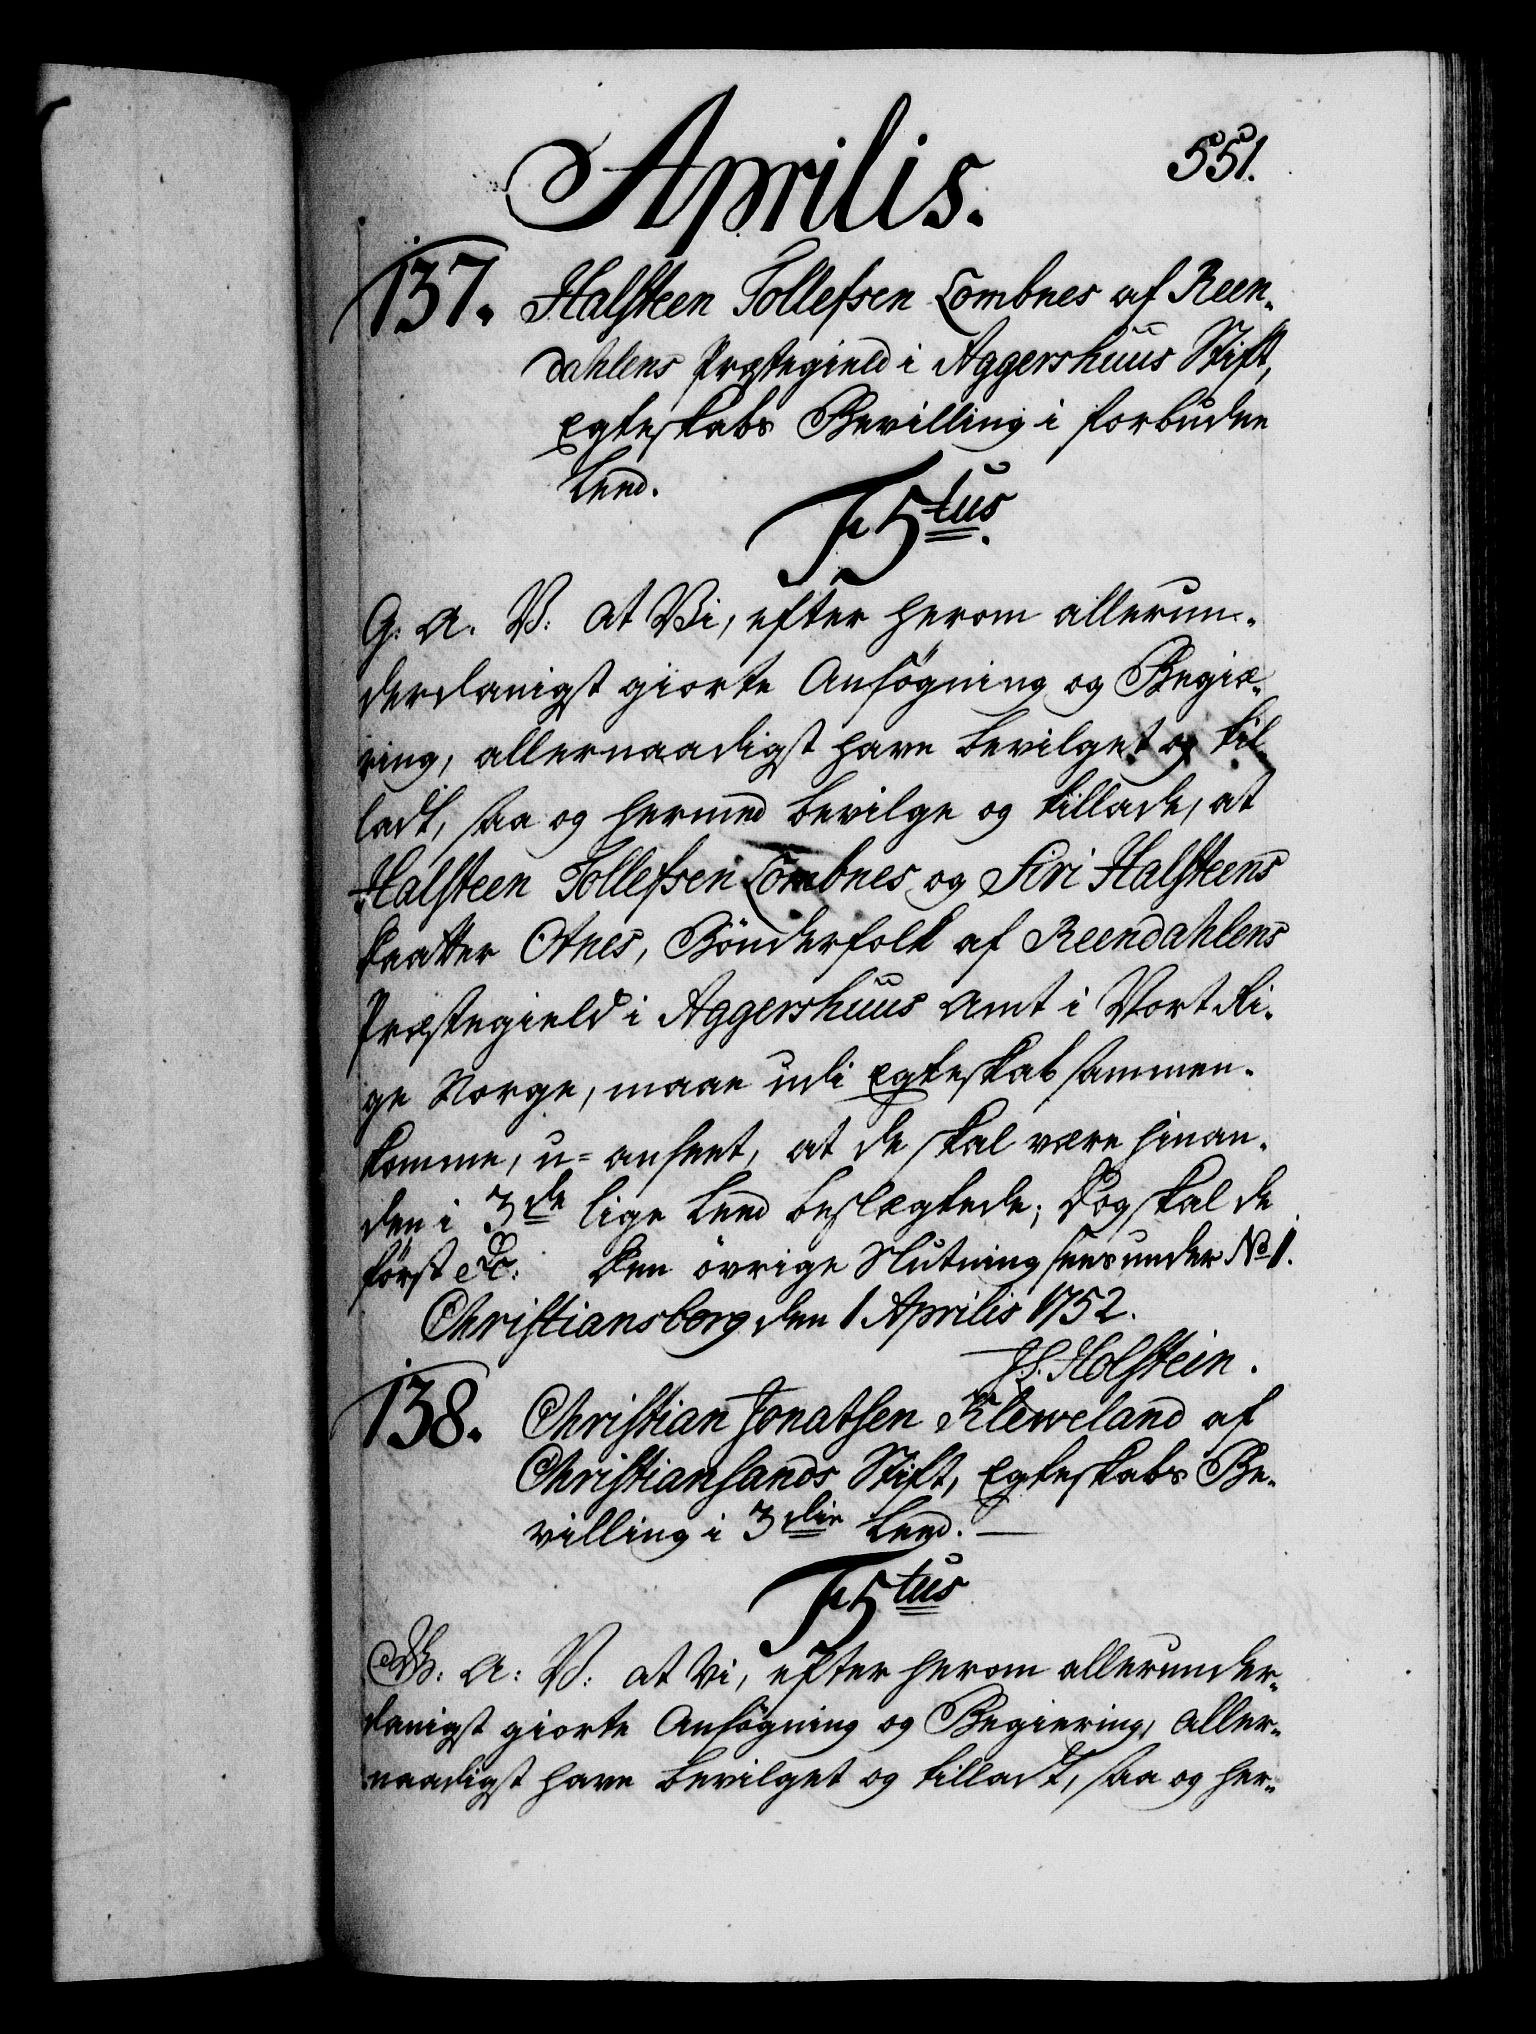 Aprilis.
551.
137. Halsteen Tollefsen Lombnes af Reen-
dahlens Præstegield i Aggershuus Stift,
Egteskabs Bevilling i forbuden
Leed.
F 5tus.
G: A. V: at Vi, efter herom allerun-
derdanigst giorte Ansøgning og Begiæ-
ring, allernaadigst have bevilget og til-
ladt, saa og hermed bevilge og tillade, at
Halsteen Tollefsen Lombnes og Siri Halsteens
Daatter Otnes, Bönderfolk af Reendahlens
Præstegield i Aggershuus Amt i Vort Ri-
ge Norge, maae udi Egteskab sammen-
komme, u-anseet, at de skal være hinan-
den i 3de lige Leed beslægtede; Dog skal de
först &c: Den övrige Slutning sees under No 1.
Christiansborg den 1 Aprilis 1752.
J.L. Holstein.
138. Christian Jonatsen Kleweland af
Christiansands Stift, Egteskabs Be-
villing i 3die Leed.
F 5tus
G: A: V: at Vi, efter herom allerunder-
danigst giorte Ansøgning og Begiering, aller-
naadigst have bevilget og tilladt, saa og her-